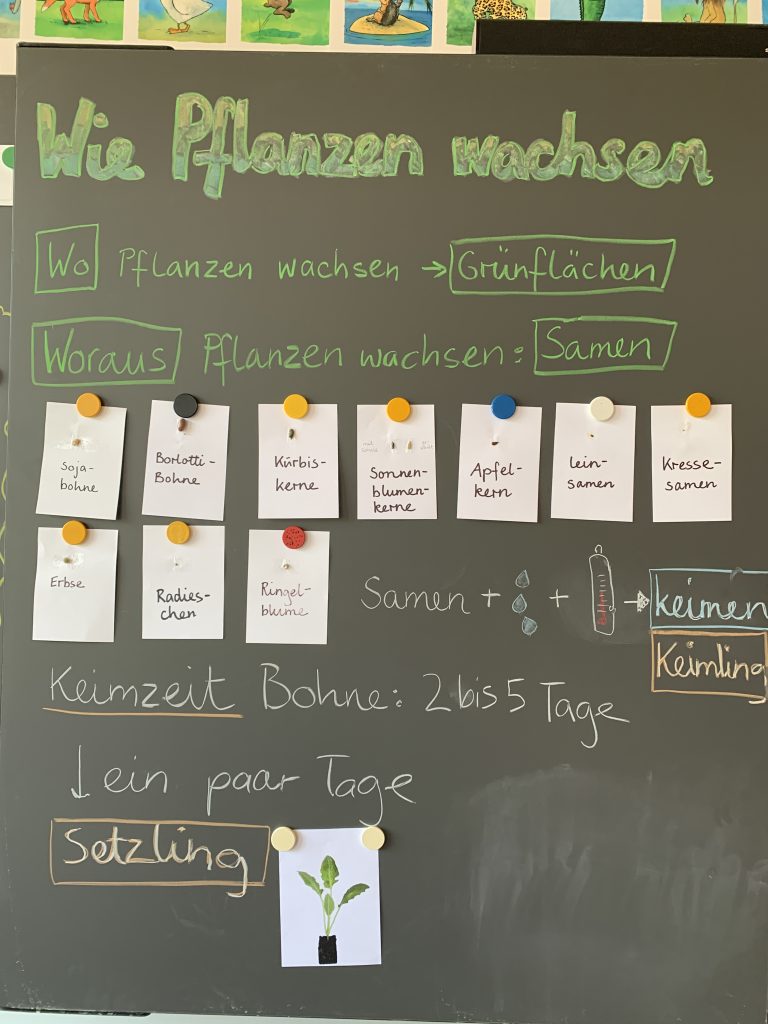 Wie Pflanzen wachsen
Wo Pflanzen wachsen → Grünflächen
Woraus Pflanzen wachsen: Samen
Soja-
bohne
Borlotti-
Bohne
Kürbis-
kerne
Sonnen-
blumen-
kerne
Apfel-
kern
lein-
samen
Kresse-
samen
Erbse
Radies-
chen
Ringel-
blume
Samen + + → keimen
Keimling
Keimzeit Bohne: 2 bis 5 Tage
↓ ein paar Tage
Setzling